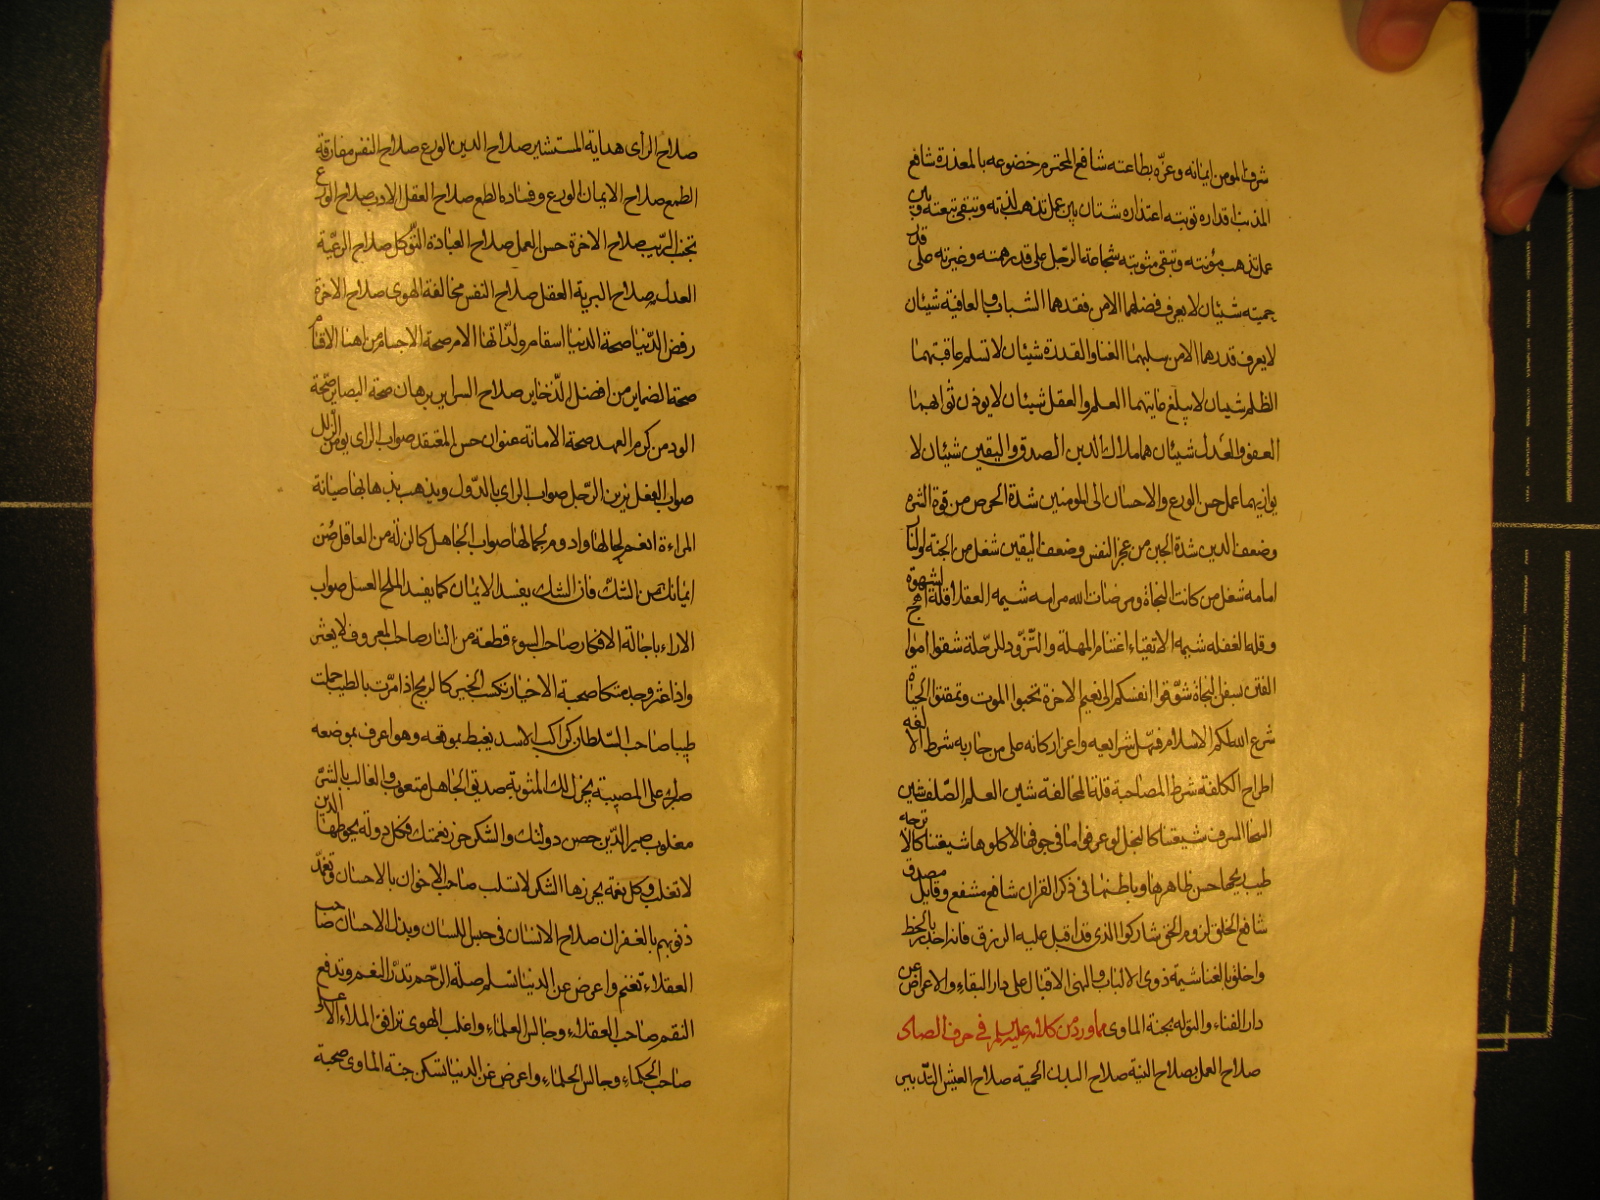 شرف المومن ايمانه وعزّه بطاعته شافع المجترم خضوعه بالمعذرة شافع
المذنب اقراره توبته اعتذاره شتان بين عمل تذهب لذته وتبقى تبعته وبين
عمل تذهب مؤنته وتبقى مثوبته شجاعة الرّجل على قدر همته وغيرته على قدر
حميته شيئان لا يعرف فضلهما الا من فقدهما الشباب والعافية شيئان
لا يعرف قدرهما الا من سلبهما الغنا والقدرة شيئان لا تسلم عاقبتهما
الظلم شيئان لا يبلغ غايتهما العلم والعقل شيئان لا يوذن ثوابهما
العفو والعدل شيئان هما ملاك الدين الصدق واليقين شيئان لا
يوازيهما عمل حسن الورع والاحسان الى المومنين شدة الحرص من قوة الشره
وضعف الدين شدة الجبن من عجز النفس وضعف اليقين شغل من الجنة والنار
امامه شغل من كانت النجاة ومرضات الله مرامه شيمة العقلا قلة الشهوة
وقلة الغفلة شيمة الاتقياء اغتنام المهلة والتّزوّد للرّحلة شقوا امواج
الفتن بسفن النجاة شوّقوا انفسكم الى نعيم الاخرة تحبوا الموت وتمقتوا الحياة
شرع الله لكم الاسلام فسهّل شرايعه واعز اركانه على من حاربه شرط الالفه
اطراح الكلفة شرط المصاحبة قلة المخالفة شين العلم الصّلف شين
السخا السرف شيعتنا كالنحل لو عرفوا ما في جوفها لاكلوها شيعتنا كالاترجه
طيب ريحها حسن ظاهرها وباطنها في ذكر القران شافع مشفع وقايل مصدق
شافع الخلق لزوم الحق شاركوا الذي قد اقبل عليه الرزق فانه اجدر بالحظ
واخلق بالغنا شيمة ذوي الالباب والنهى الاقبال على دار البقاء والاعراض عن
دار الفناء والتوله بجنة الماوى مما ورد من كلامه عليه السلم في حرف الصاد
صلاح العمل بصلاح النية صلاح البدن الحمية صلاح العيش التدبير
صلاح الراى هداية المستشير صلاح الدين الورع صلاح النفس مفارقة
الطمع صلاح الايمان الورع وفساده الطمع صلاح العقل الادب صلاح الورع
تجنب الرّيب صلاح الاخرة حسن العمل صلاح العبادة التّوكل صلاح الرعيّة
العدل صلاح البرية العقل صلاح النفس مخالفة الهوى صلاح الاخرة
رفض الدّنيا صحة الدنيا اسقام ولذّاتها الام صحة الاجسام من اهنا الاقسام
صحة الضماير من افضل الذّخاير صلاح السراير برهان صحة البصاير صحّة
الود من كرم العهد صحة الامانة عنوان حسن المعتقد صواب الراى يومن الزّلل
صواب الفعل يزين الرّجل صواب الراى بالدّول ويذهب بذهابها صيانة
المراءة انعم لحالها وادوم لجمالها صواب الجاهل كالزلة من العاقل صُن
ايمانك من الشك فان الشك يفسد الايمان كما يفسد الملح العسل صواب
الاراء باجالة الافكار صاحب السوء قطعة من النار صاحب المعروف لا يعثر
واذا عثر وجد متكا صحبة الاخيار تكسب الخير كالريح اذا مرّت بالطيب حملت
طيبا صاحب السّلطان كراكب الاسد يغبط بموقعه وهو اعرف بموضعه
صبرك على المصيبة يجزل لك المثوبة صديق الجاهل متعوب والغالب بالشرّ
مغلوب صير الدّين حصن دولتك والشكر حرز نعمتك فكل دولة يحوطها الدين
لا تغلب وكل نعمة يحرزها الشكر لا تسلب صاحب الاخوان بالاحسان وتغمّد
ذنوبهم بالغفران صلاح الانسان في حبس اللسان وبذل الاحسان صاحب
العقلاء تغنم واعرض عن الدنيا تسلم صلة الرّحم تدرّ النعم وتدفع
النقم صاحب العقلاء وجالس العلماء واغلب الهوى ترافق الملاء الاعلى
صاحب الحكماء وجالس الحلماء واعرض عن الدنيا تسكن جنة الماوى صحبة